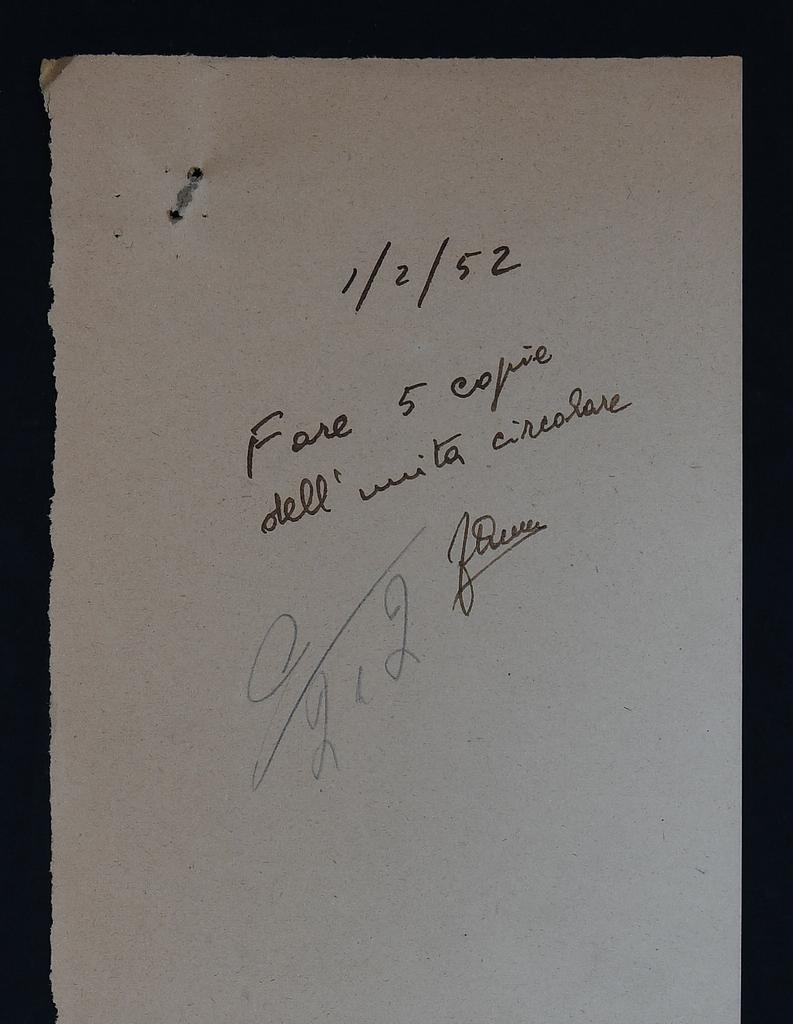 1/2/52
Fare 5 copie
dell'unita circolare